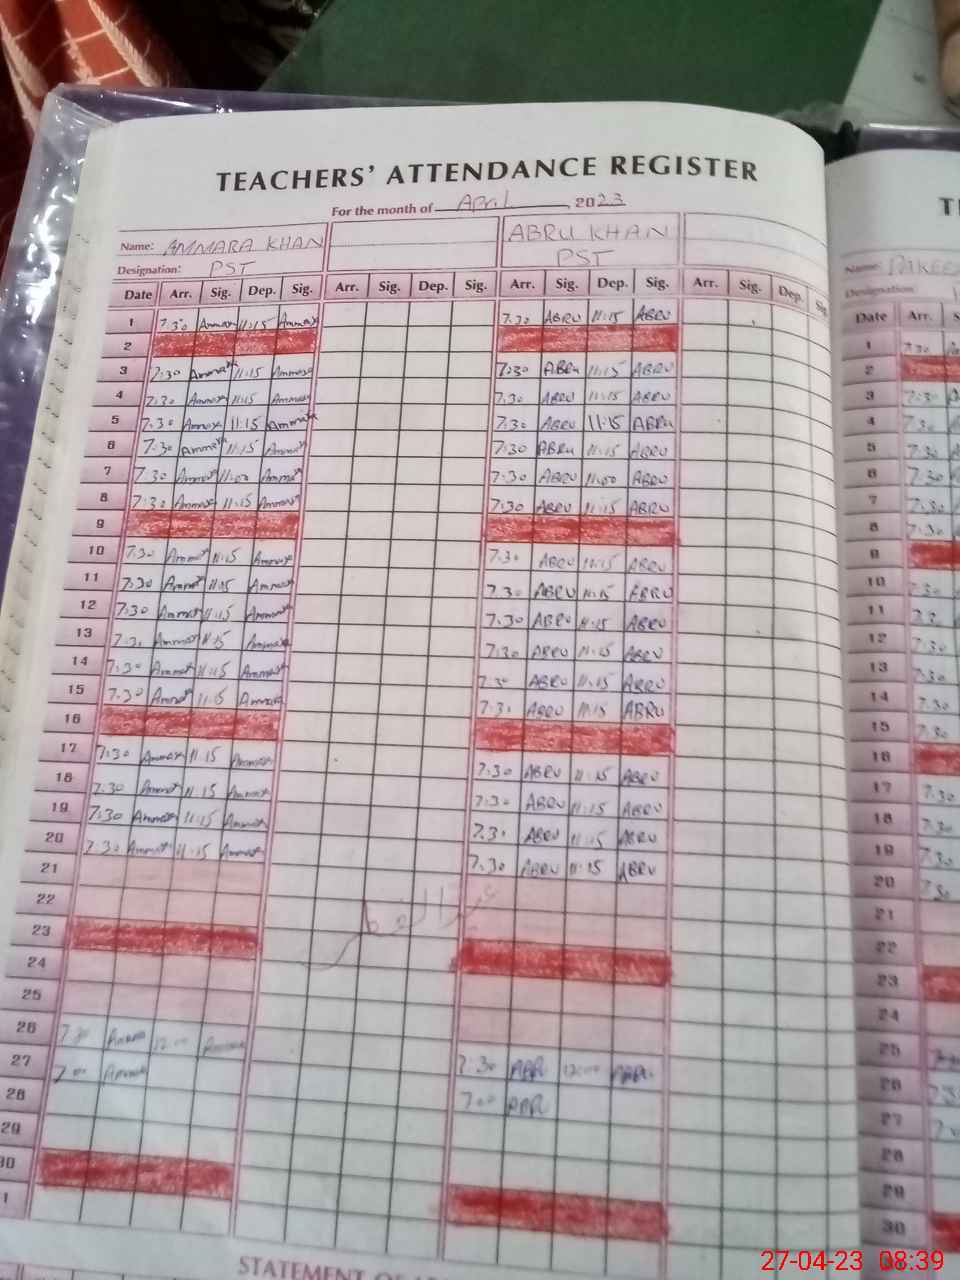 TEACHERS' ATTENDANCE REGISTER
For the month of April 2023
Name: AMMARA KHAN ABRU KHAN Name:
Designation: PST PST Designation:
Date Arr. Sig. Dep. Sig. Arr. Sig. Dep. Sig. Arr. Sig. Dep. Sig. Arr. Sig. Dep. Sig. Date Arr.
1 7:30 Ammara 11:15 Ammara 7:30 ABRU 11:15 ABRU 1 7:30
2 2
3 7:30 Ammara 11:15 Ammara 7:30 ABRU 11:15 ABRU 3
4 7:30 Ammara 11:15 Ammara 7:30 ABRU 11:15 ABRU 4
5 7:30 Ammara 11:15 Ammara 7:30 ABRU 11:15 ABRU 5
6 7:30 Ammara 11:15 Ammara 7:30 ABRU 11:15 ABRU 6
7 7:30 Ammara 11:00 Ammara 7:30 ABRU 11:00 ABRU 7
8 7:30 Ammara 11:15 Ammara 7:30 ABRU 11:15 ABRU 8
9 9
10 7:30 Ammara 11:15 Ammara 7:30 ABRU 11:15 ABRU 10
11 7:30 Ammara 11:15 Ammara 7:30 ABRU 11:15 ABRU 11
12 7:30 Ammara 11:15 Ammara 7:30 ABRU 11:15 ABRU 12
13 7:30 Ammara 11:15 Ammara 7:30 ABRU 11:15 ABRU 13
14 7:30 Ammara 11:15 Ammara 7:30 ABRU 11:15 ABRU 14
15 7:30 Ammara 11:15 Ammara 7:30 ABRU 11:15 ABRU 15
16 16
17 7:30 Ammara 11:15 Ammara 7:30 ABRU 11:15 ABRU 17 7:30
18 7:30 Ammara 11:15 Ammara 7:30 ABRU 11:15 ABRU 18 7:30
19 7:30 Ammara 11:15 Ammara 7:30 ABRU 11:15 ABRU 19 7:30
20 7:30 Ammara 11:15 Ammara 7:30 ABRU 11:15 ABRU 20 7:30
21 21
22 عید الفطر 22
23 23
24 24
25 25
26 7:30 Ammara 12:00 Ammara 7:30 ABRU 12:00 ABRU 26
27 7:00 Ammara 7:00 ABRU 27
28 28
29 29
30 30
STATEMENT OF
27-04-23 08:39